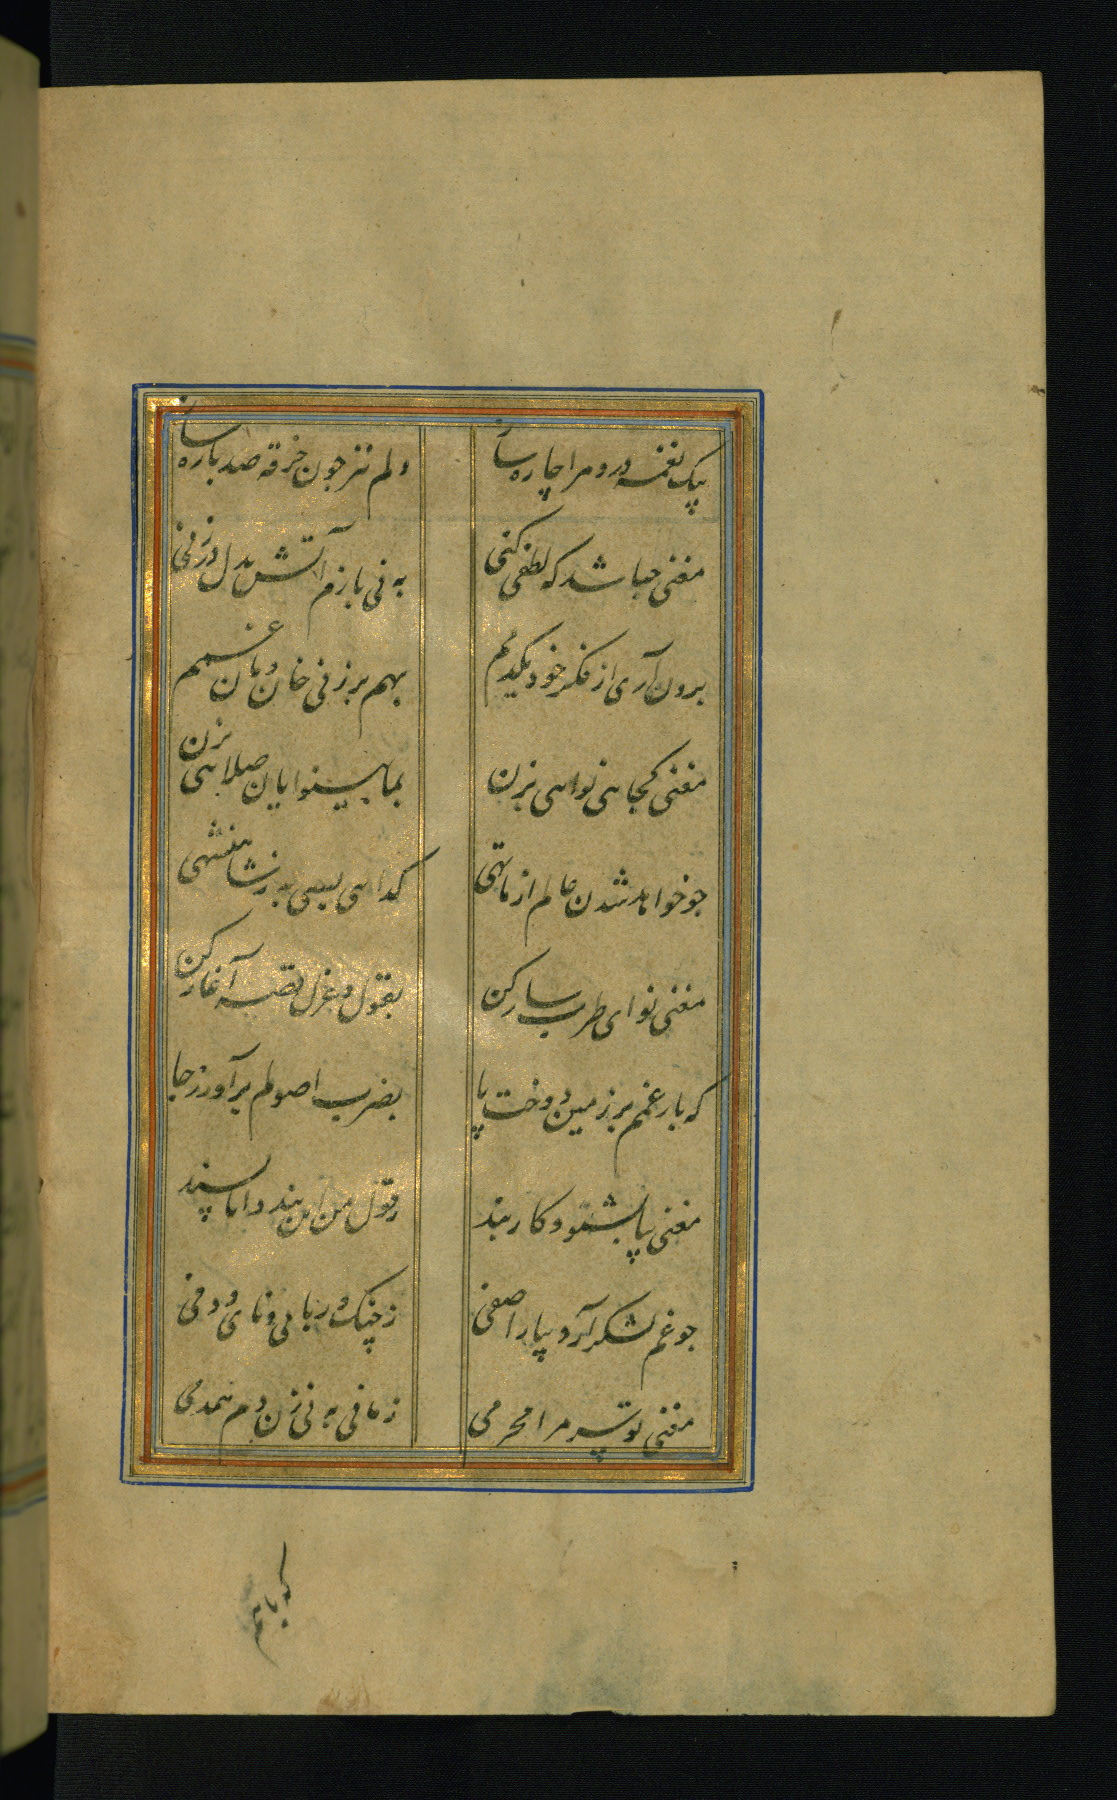 بیک نغمه درد مرا چاره ساز
دلم نیز چون خرقه صد پاره ساز
مغنی چباشد که لطفی کنی
به نی بازم آتش بدل در زنی
برون آری از فکر خود یکدمم
بهم بر زنی خان و مان غمم
مغنی کجا ئی نوا ئی بزن
بما بینوایان صلا ئی بزن
چو خواهد شدن عالم از ما تهی
گدا ئی بسی به ز شاهنشهی
مغنی نوای طرب ساز کن
بقول و غزل قصه آغاز کن
که بار غمم بر زمین دوخت پا
بضرب اصولم برآور ز جا
مغنی بیا بشنو و کار بند
ز قول من این پند دانا پسند
چو غم لشکر آرد بیارا صفی
ز چنک و رباب و نای و دفی
مغنی تو سر مرا محرمی
زمانی به نی زن دم همدمی
که با هم